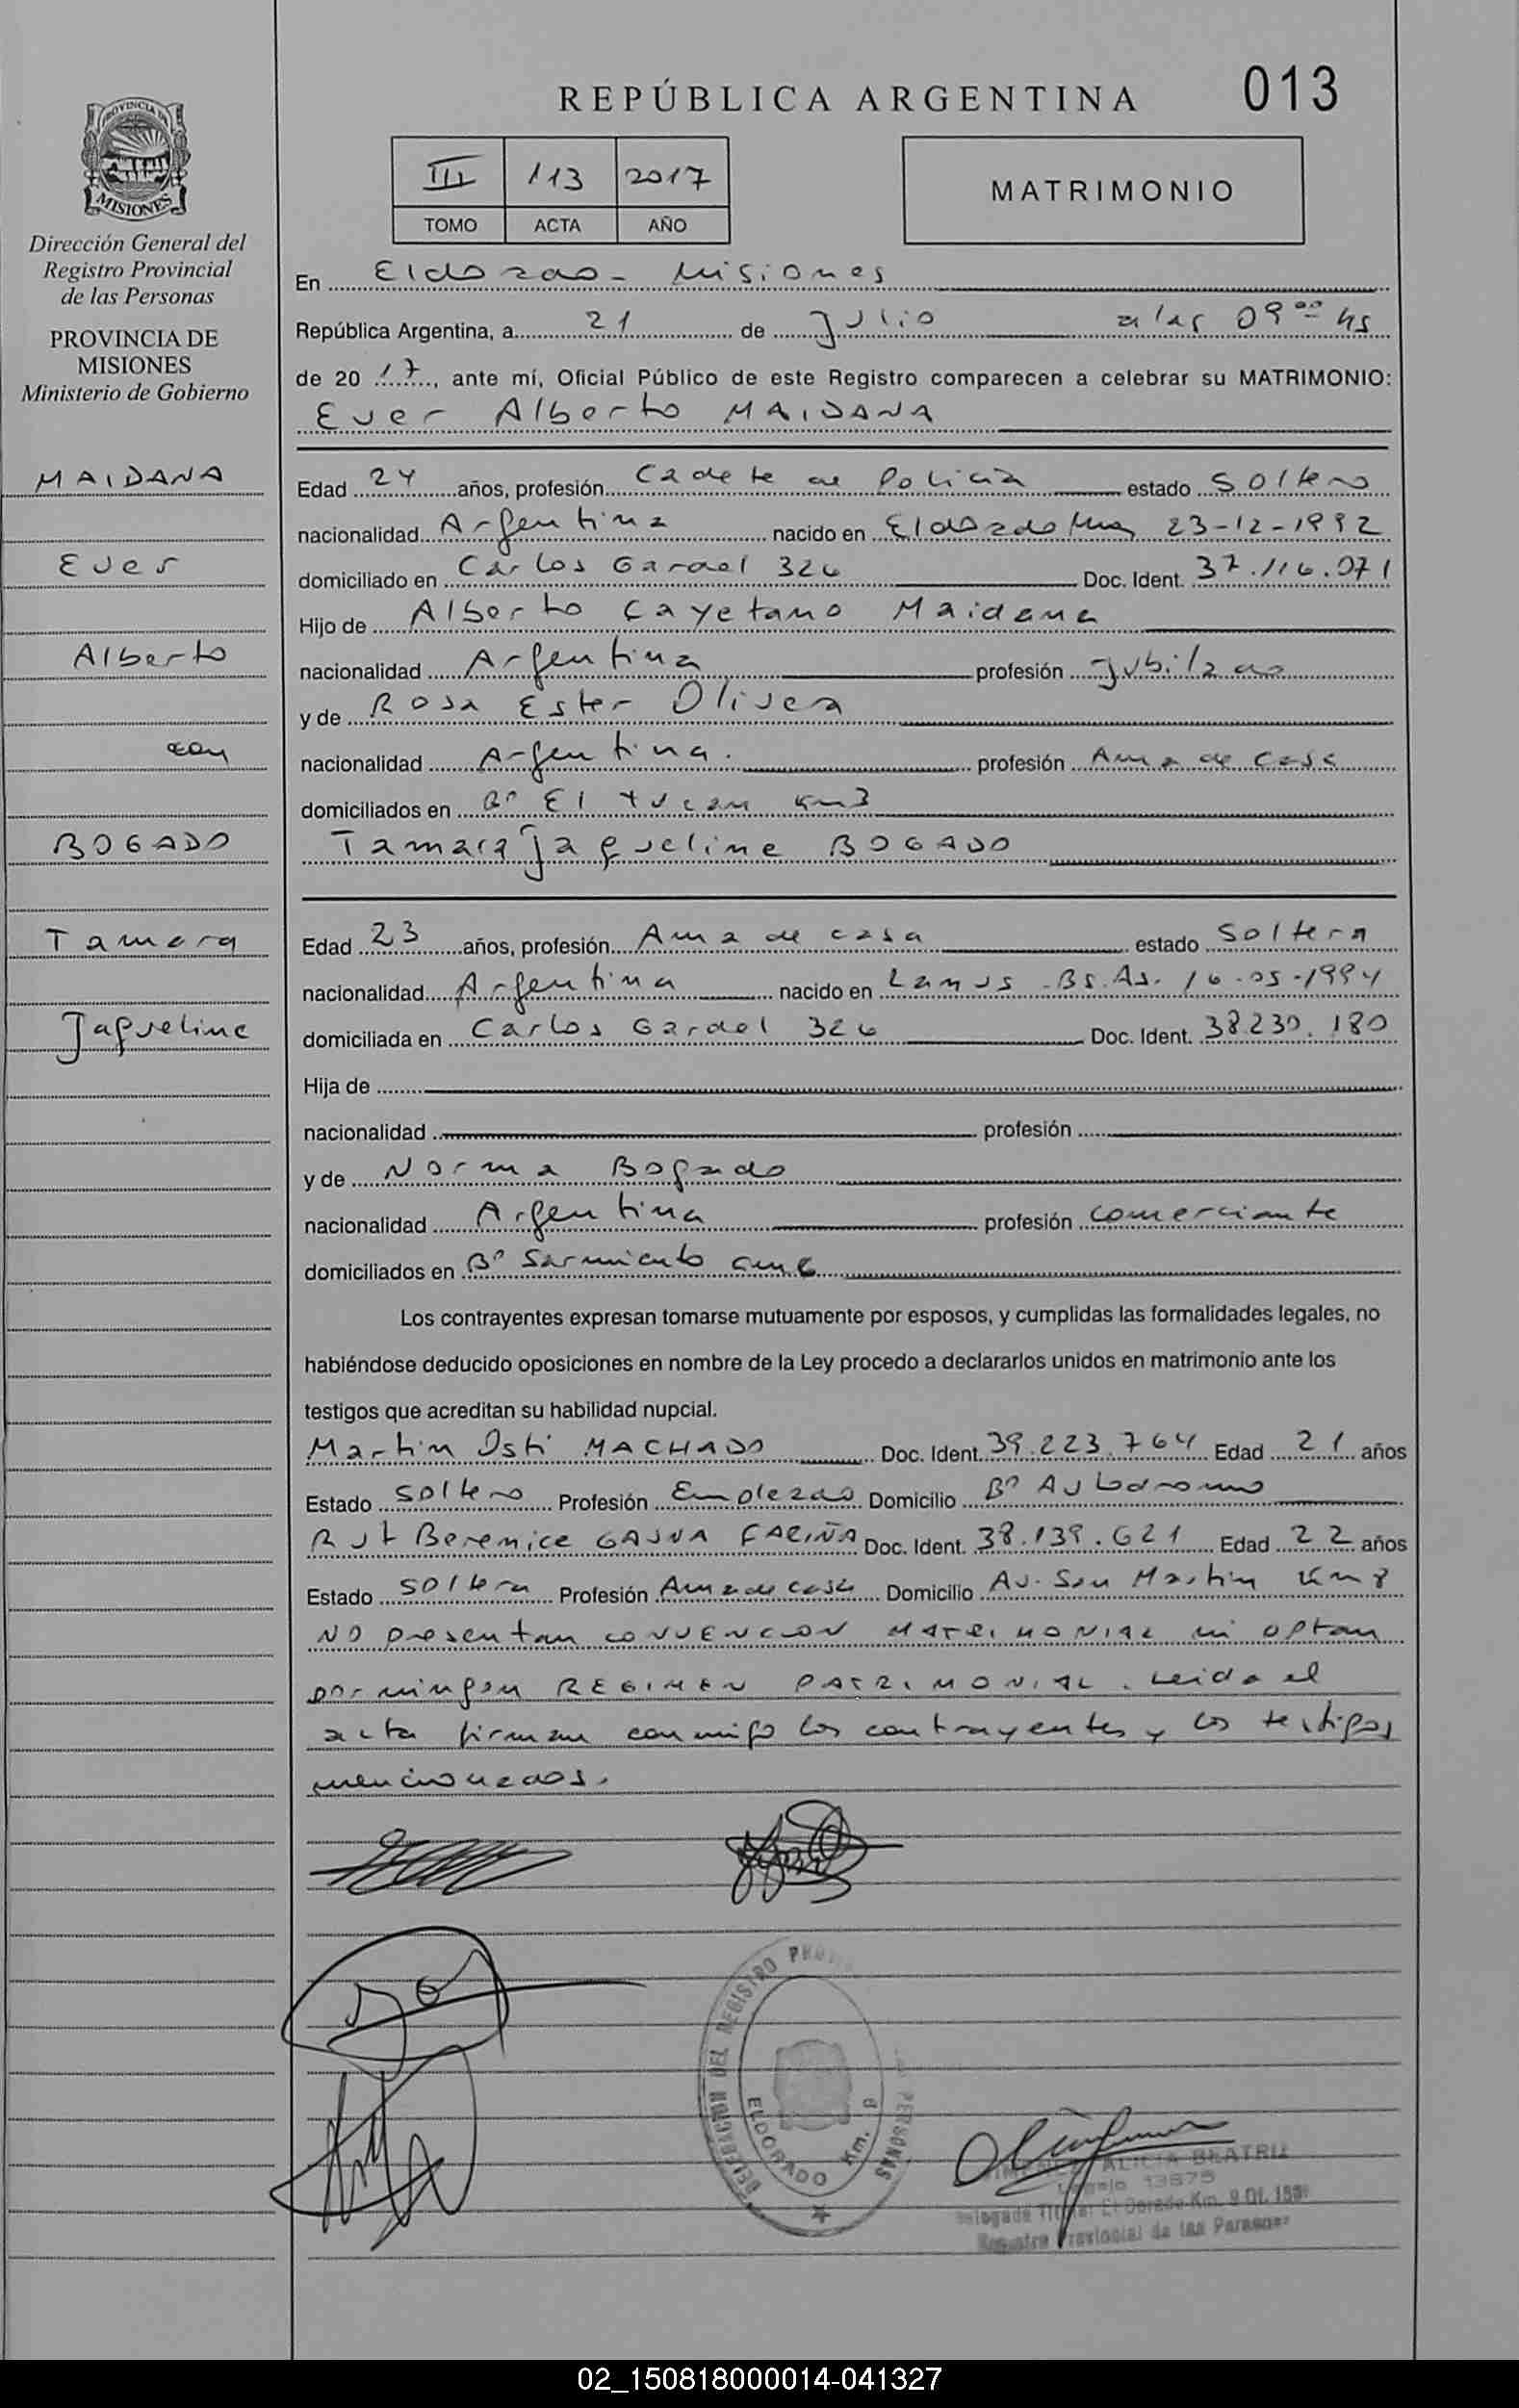 REPÚBLICA ARGENTINA 013
PROVINCIA DE
MISIONES
Dirección General del
Registro Provincial
de las Personas
PROVINCIA DE
MISIONES
Ministerio de Gobierno
III 113 2017
TOMO ACTA AÑO
MATRIMONIO
En Eldorado - Misiones
República Argentina, a 21 de Julio a las 09 00 hs
de 20 17, ante mí, Oficial Público de este Registro comparecen a celebrar su MATRIMONIO:
Ever Alberto MAIDANA
MAIDANA
Ever
Alberto
con
BOGADO
Tamara
Jaqueline
Edad 24 años, profesión Cadete de Policia estado Soltero
nacionalidad Argentina nacido en Eldorado Mnes 23-12-1992
domiciliado en Carlos Gardel 326 Doc. Ident. 37.116.071
Hijo de Alberto Cayetano Maidana
nacionalidad Argentina profesión Jubilado
y de Rosa Ester Olivera
nacionalidad Argentina. profesión Ama de Casa
domiciliados en Bº El Tucan Km3
Tamara Jaqueline BOGADO
Edad 23 años, profesión Ama de casa estado Soltera
nacionalidad Argentina nacido en Lanus - Bs. As. 16-05-1994
domiciliada en Carlos Gardel 326 Doc. Ident. 38.230.180
Hija de
nacionalidad profesión
y de Norma Bogado
nacionalidad Argentina profesión comerciante
domiciliados en Bº Sarmiento Km 6
Los contrayentes expresan tomarse mutuamente por esposos, y cumplidas las formalidades legales, no
habiéndose deducido oposiciones en nombre de la Ley procedo a declararlos unidos en matrimonio ante los
testigos que acreditan su habilidad nupcial.
Martin Osti MACHADO Doc. Ident. 39.223.764 Edad 21 años
Estado soltero Profesión Empleado Domicilio Bº Autodromo
Rut Berenice GAUNA FARIÑA Doc. Ident. 38.139.621 Edad 22 años
Estado soltera Profesión Ama de casa Domicilio Av. San Martin Km 8
NO presentan CONVENCION MATRIMONIAL ni optan
por ningun REGIMEN PATRIMONIAL. Leida el
acta firman conmigo los contrayentes y los testigos
mencionados.
DELEGACION DEL REGISTRO PERSONAS
ELDORADO Km. 9
ALICIA BEATRIZ
Legajo 13675
Delegada Titular El Dorado Km. 9 Of.
Registro Provincial de las Personas
02_150818000014-041327